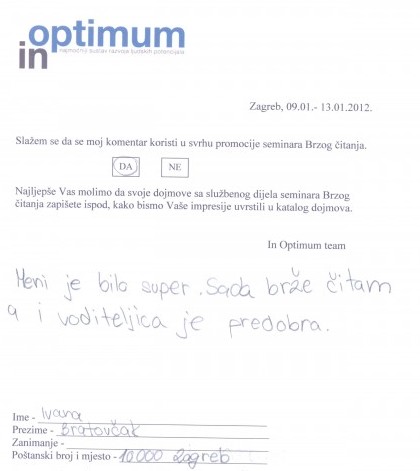 in optimum
najmoćniji sustav razvoja ljudskih potencijala
Zagreb, 09.01.- 13.01.2012.
Slažem se da se moj komentar koristi u svrhu promocije seminara Brzog čitanja.
DA NE
Najljepše Vas molimo da svoje dojmove sa službenog dijela seminara Brzog
čitanja zapišete ispod, kako bismo Vaše impresije uvrstili u katalog dojmova.
In Optimum team
Meni je bilo super. Sada brže čitam
a i voditeljica je predobra.
Ime - Ivana
Prezime - Bratovčak
Zanimanje -
Poštanski broj i mjesto - 10.000 Zagreb